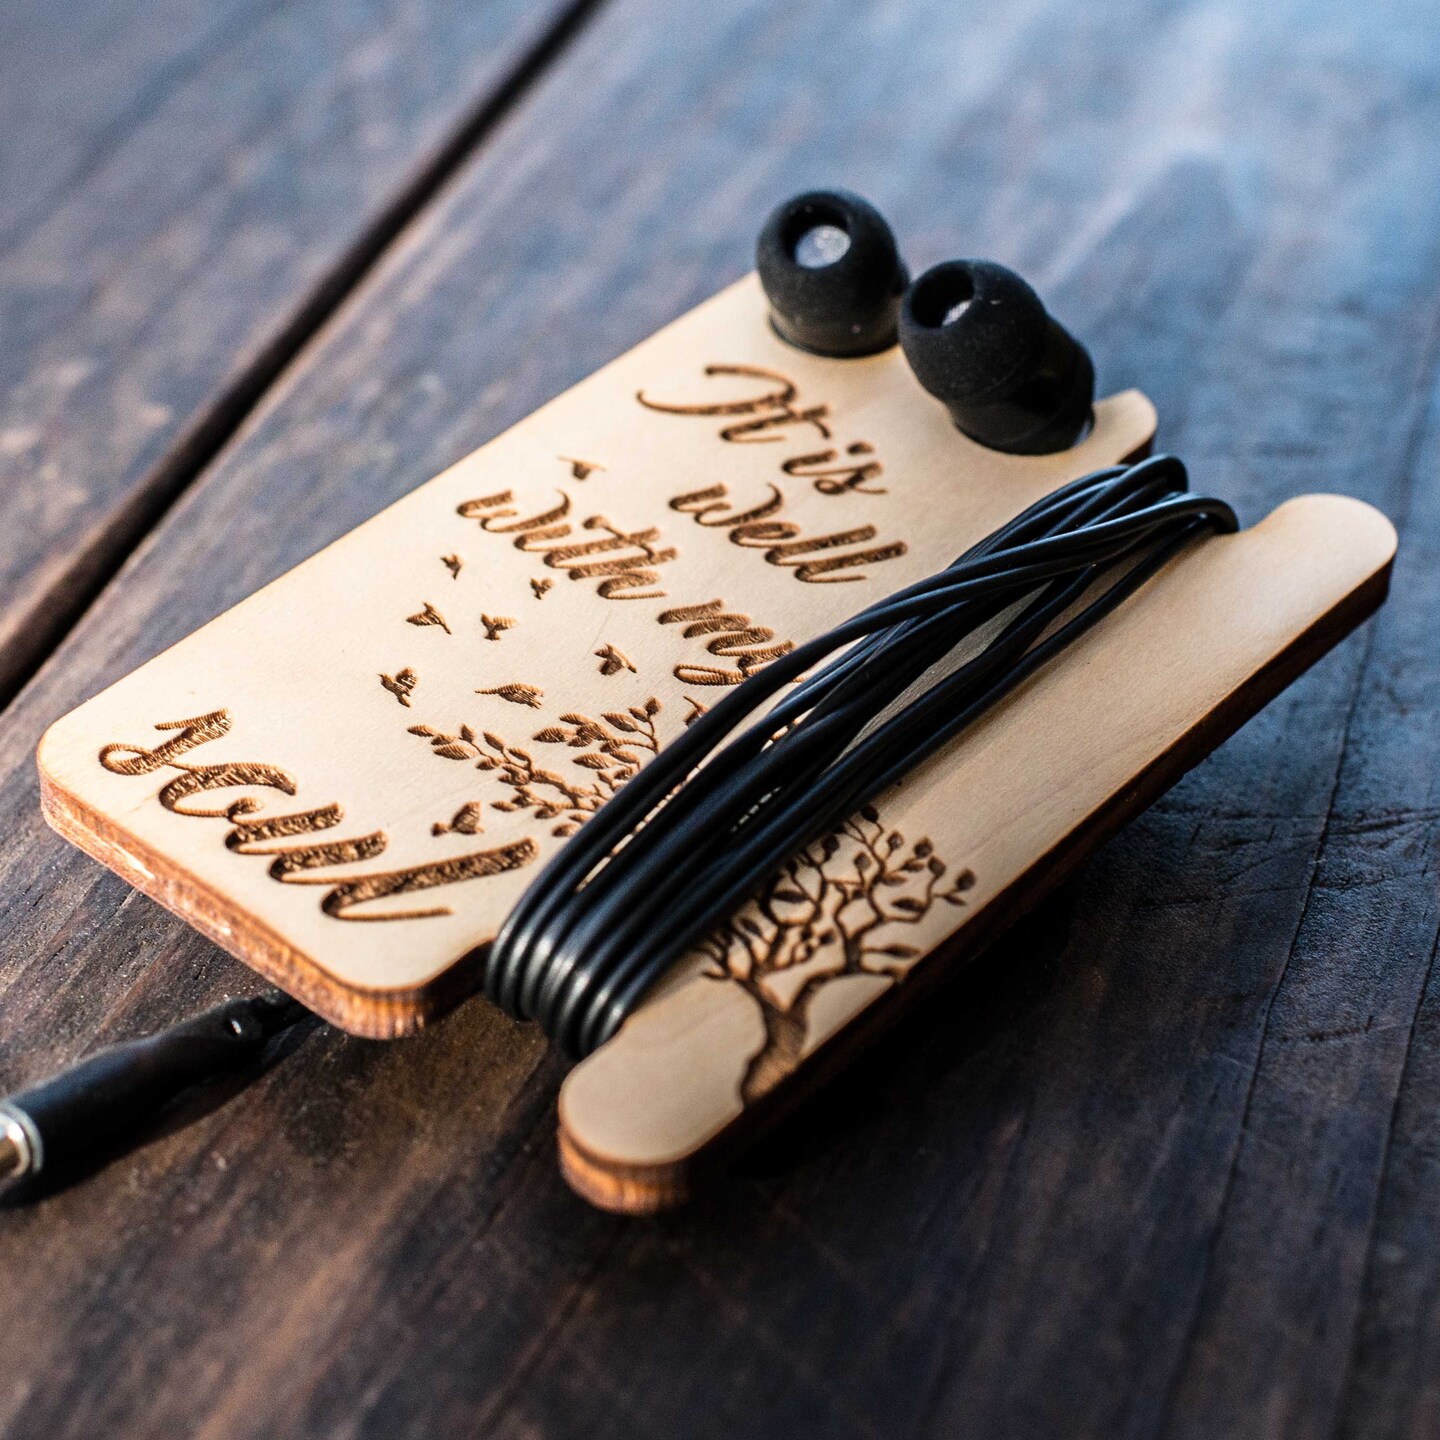 It is
well
with my
soul